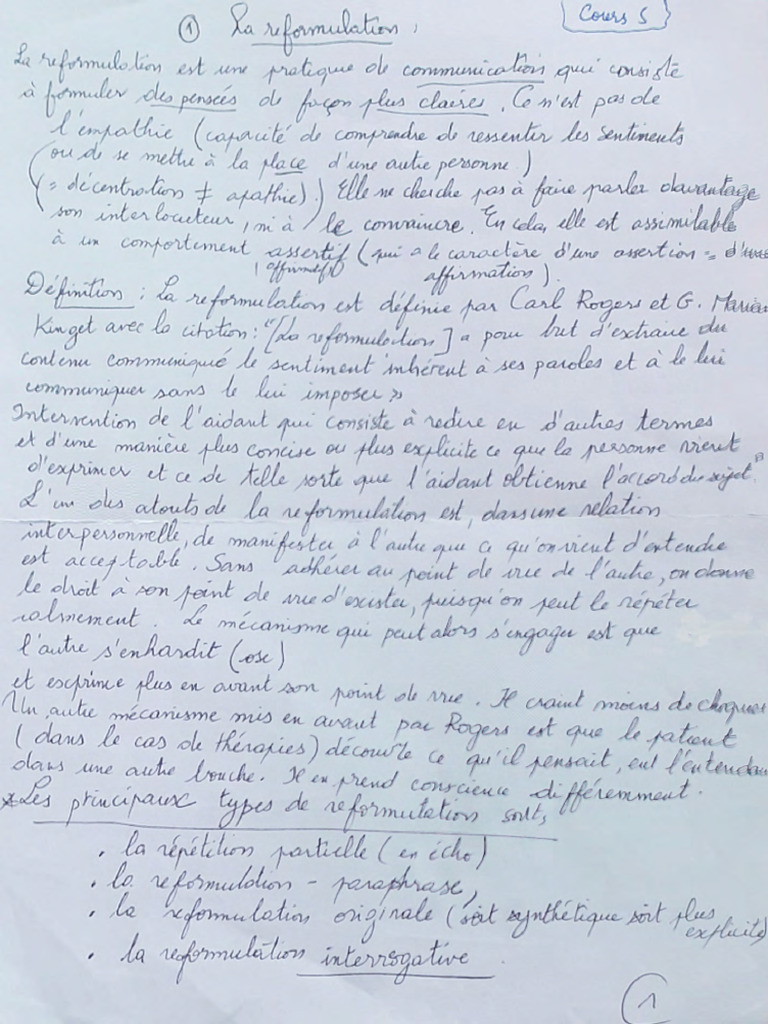 Cours 5
① La reformulation :
La reformulation est une pratique de communication qui consiste
à formuler des pensées de façon plus claires. Ce n'est pas de
l'empathie (capacité de comprendre de ressentir les sentiments
(ou de se mettre à la place d'une autre personne.)
(= décentration ≠ apathie).) Elle ne cherche pas à faire parler davantage
son interlocuteur, ni à le convaincre. En cela, elle est assimilable
à un comportement assertif (qui a le caractère d'une assertion = d'une
(affirmatif) affirmation).
Définition : La reformulation est définie par Carl Rogers et G. Marian
Kinget avec la citation : "[La reformulation] a pour but d'extraire du
contenu communiqué le sentiment inhérent à ses paroles et à le lui
communiquer sans le lui imposer »
Intervention de l'aidant qui consiste à redire en d'autres termes
et d'une manière plus concise ou plus explicite ce que la personne vient
d'exprimer et ce de telle sorte que l'aidant obtienne l'accord du sujet."
L'un des atouts de la reformulation est, dans une relation
interpersonnelle, de manifester à l'autre que ce qu'on vient d'entendre
est acceptable. Sans adhérer au point de vue de l'autre, on donne
le droit à son point de vue d'exister, puisqu'on peut le répéter
calmement. Le mécanisme qui peut alors s'engager est que
l'autre s'enhardit (ose)
et exprime plus en avant son point de vue. Il craint moins de choquer
Un autre mécanisme mis en avant par Rogers est que le patient
(dans le cas de thérapies) découvre ce qu'il pensait, en l'entendant
dans une autre bouche. Il en prend conscience différemment.
*Les principaux types de reformulation sont,
• la répétition partielle (en écho)
• la reformulation - paraphrase,
• la reformulation originale (soit synthétique soit plus
explicite)
• la reformulation interrogative.
1